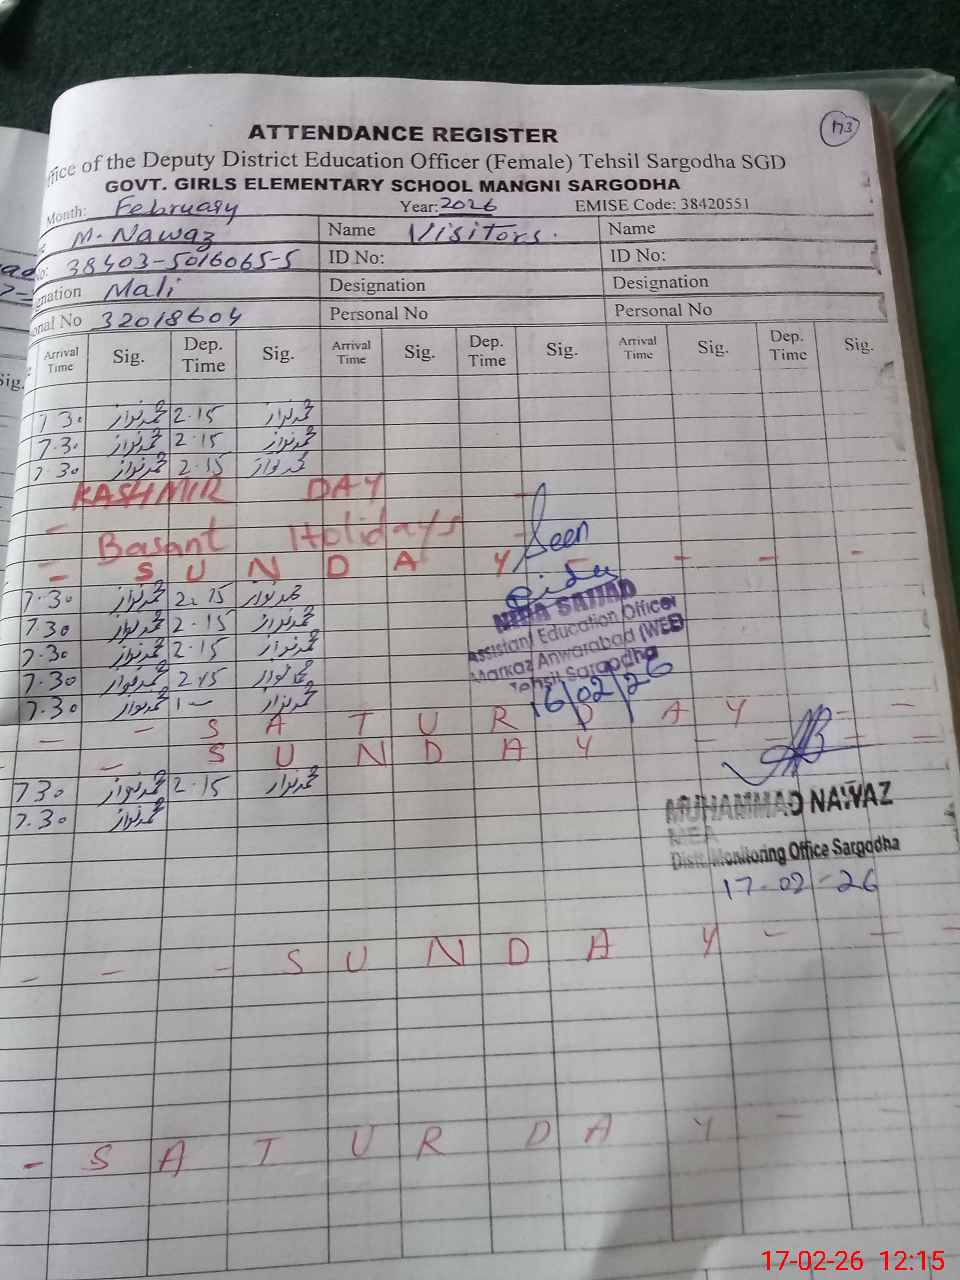 173
ATTENDANCE REGISTER
ffice of the Deputy District Education Officer (Female) Tehsil Sargodha SGD
GOVT. GIRLS ELEMENTARY SCHOOL MANGNI SARGODHA
Month: February Year: 2026 EMISE Code: 38420551
M. Nawaz Name Visitors. Name
No: 38403-5016065-5 ID No: ID No:
gnation Mali Designation Designation
onal No 32018604 Personal No Personal No
Arrival Time Sig. Dep. Time Sig. Arrival Time Sig. Dep. Time Sig. Arrival Time Sig. Dep. Time Sig.
7 30 محمد نواز 2.15 محمد نواز
7.30 محمد نواز 2.15 محمد نواز
7.30 محمد نواز 2.15 محمد نواز
KASHMIR DAY
- Basant Holidays
Seen
- SUNDAY - - - -
7.30 محمد نواز 2.15 محمد نواز
7.30 محمد نواز 2.15 محمد نواز
7.30 محمد نواز 2.15 محمد نواز
7.30 محمد نواز 2.15 محمد نواز
7.30 محمد نواز 1 - محمد نواز
SAJJAD
Assistant Education Officer
Markaz Anwarabad (WEE)
Tehsil Sargodha
16/02/26
- - SATURDAY - -
- - SUNDAY - - -
7 30 محمد نواز 2.15 محمد نواز
7.30 محمد نواز
MUHAMMAD NAWAZ
MEA
Distt. Monitoring Office Sargodha
17-02-26
- - - SUNDAY - - -
- SATURDAY - -
17-02-26 12:15